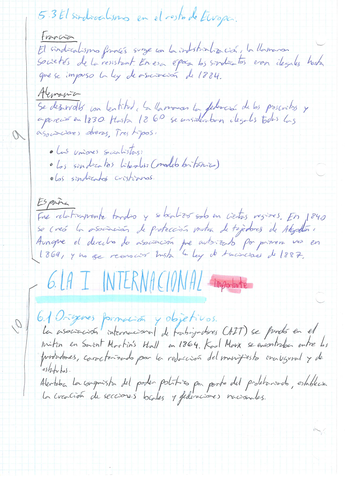 5.3 El sindicalismo en el resto de Europa.
Francia
El sindicalismo francés surge con la industrialización, la llamaron
Societés de la resistant. En esa epoca los sindicatos eran ilegales hasta
que se impuso la ley de asociación de 1884.
Alemania
Se desarrolló con lentitud, la llamaron la federación de los proscritos y
aparecio en 1830. Hasta 1860 se consideraban ilegales todas las
asociaciones obreras, Tres tipos:
• Las uniones socialistas:
• Los sindicatos liberales (modelo britanico)
• Los sindicatos cristianos
9
España
Fue relativamente tardio y localizado solo en ciertas regiones. En 1840
se creó la asociación de protección mutua de tejedores de Algodón.
Aunque el derecho de asociación fue autorizado por primera vez en
1868, y no se reconoció hasta la ley de asociaciones de 1887.
6. LA I INTERNACIONAL
Importante
10
6.1 Origenes formación y objetivos.
La asociación internacional de trabajadores (AIT) se fundó en el
mitin en Saint Martin's Hall en 1864. Karl Marx se encontraba entre los
fundadores, caracterizado por la redacción del manifiesto inaugural y de
estatutos.
Alentaba la conquista del poder político por parte del proletariado, establecia
la creación de secciones locales y federaciones nacionales.